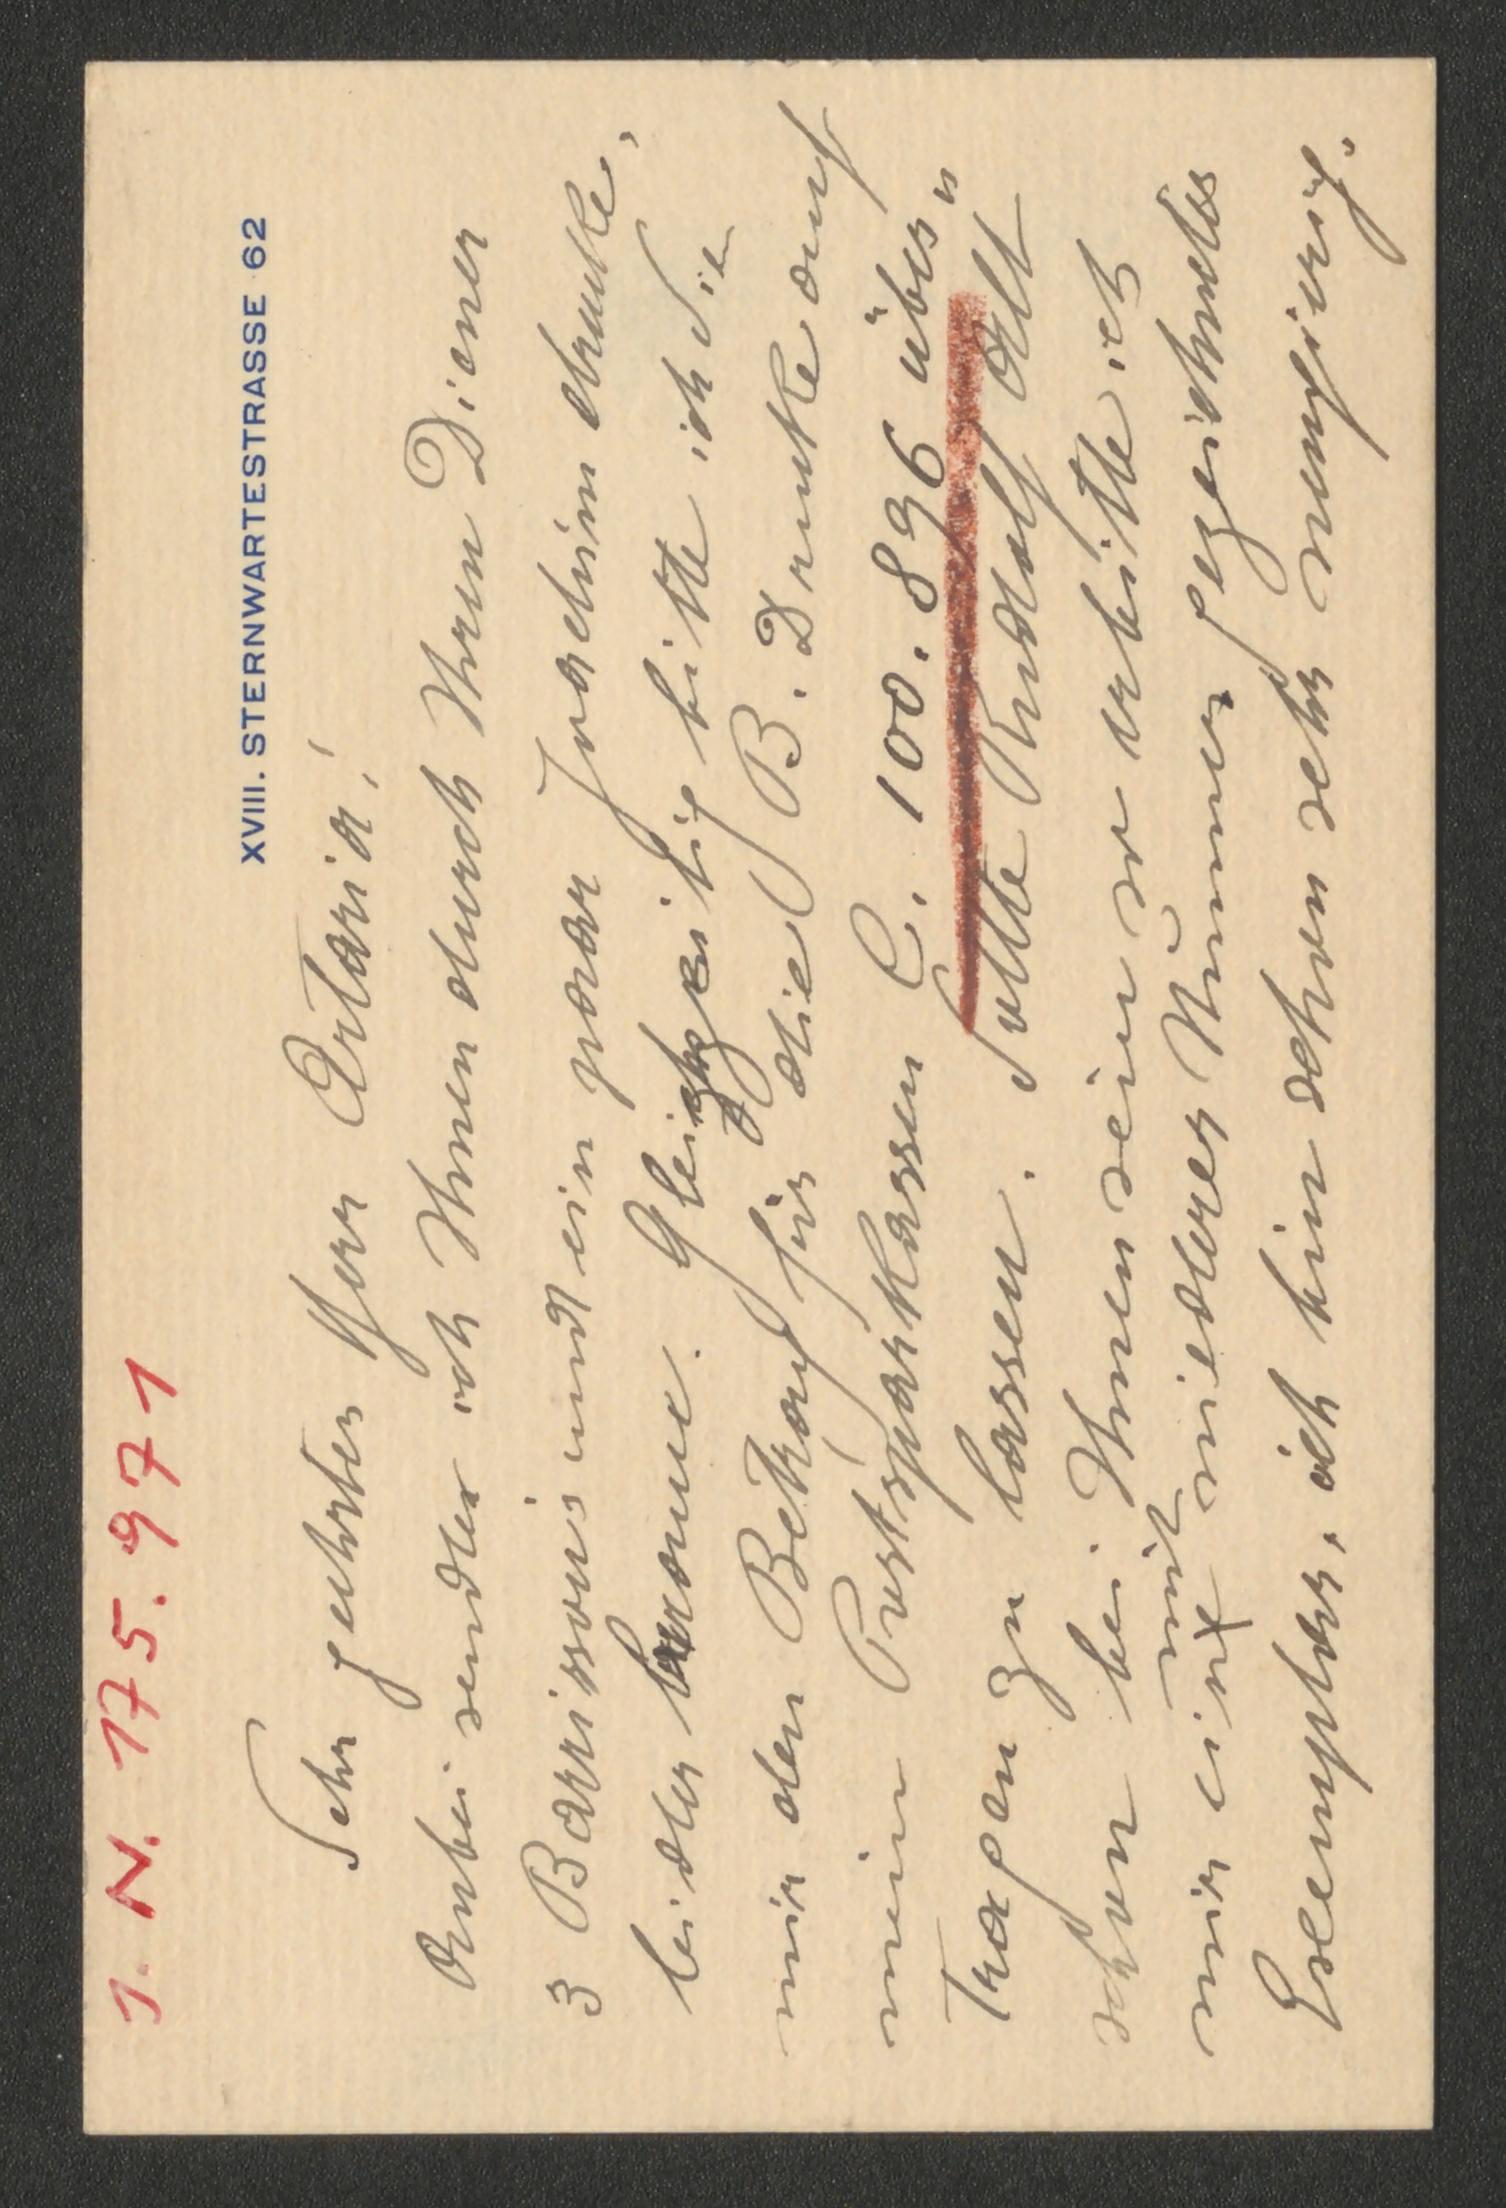 J. N. 175.971
XVIII. STERNWARTESTRASSE 62
Sehr geehrter Herr Artaria!
Anbei sende ich Ihnen durch Ihren Diener
3 Barrisonis und ein paar Joachim drucke,
leider braune. Gleichzeitig bitte ich Sie
mir den Betrag für die B. Drucke auf
mein Postsparkassen C. 100.896 über„
tragen zu lassen. Sollte Rudolf Alt
schon bei Ihnen sein so erbitte ich
mir ein mit niederer Nummer gezeichnetes
Exemplar, ich bin schon sehr neugierig.